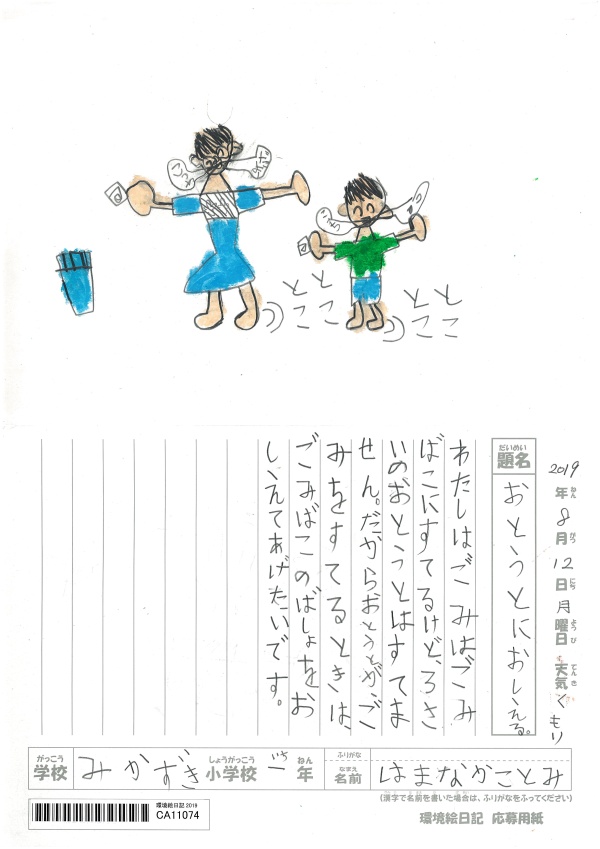 とことこ
とことこ
2019年ねん8月がつ12日にち月曜日ようび天気てんきくもり
題名だいめい おとうとにおしえる。
わたしはごみはごみ
ばこにすてるけど、3さ
いのおとうとはすてま
せん。だからおとうとが、ご
みをすてるときは、
ごみばこのばしょをお
しえてあげたいです。
がっこう しょうがっこう いち ねん ふりがな なまえ
学校 みかずき 小学校 一 年 名前 はまなかことみ
(漢字で名前を書いた場合は、ふりがなをふってください)
環境絵日記 2019
CA11074
環境絵日記 応募用紙